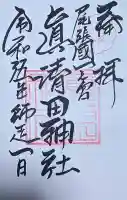 奉拝
尾張國一宮
真清田神社
令和五年師走一日